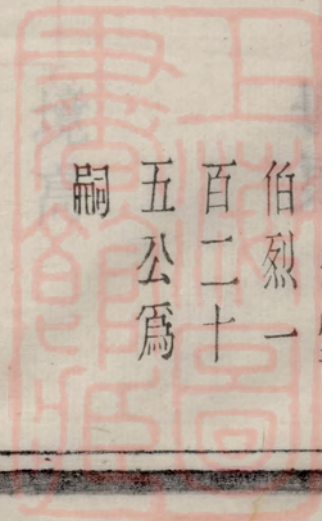 伯烈一
百二十
五公爲
嗣